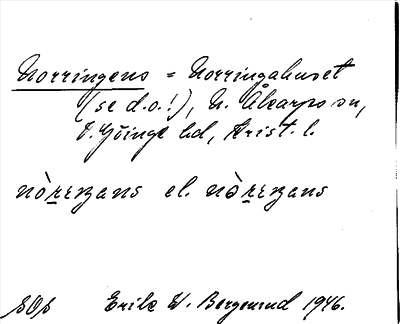 Norringens = Norringahuset
(se d.o.!), N. Åkarps sn,
V. Göinge hd, Krist. l.
nòrɪŋans el. nòrɪŋans
Erik W. Bergerud 1946.